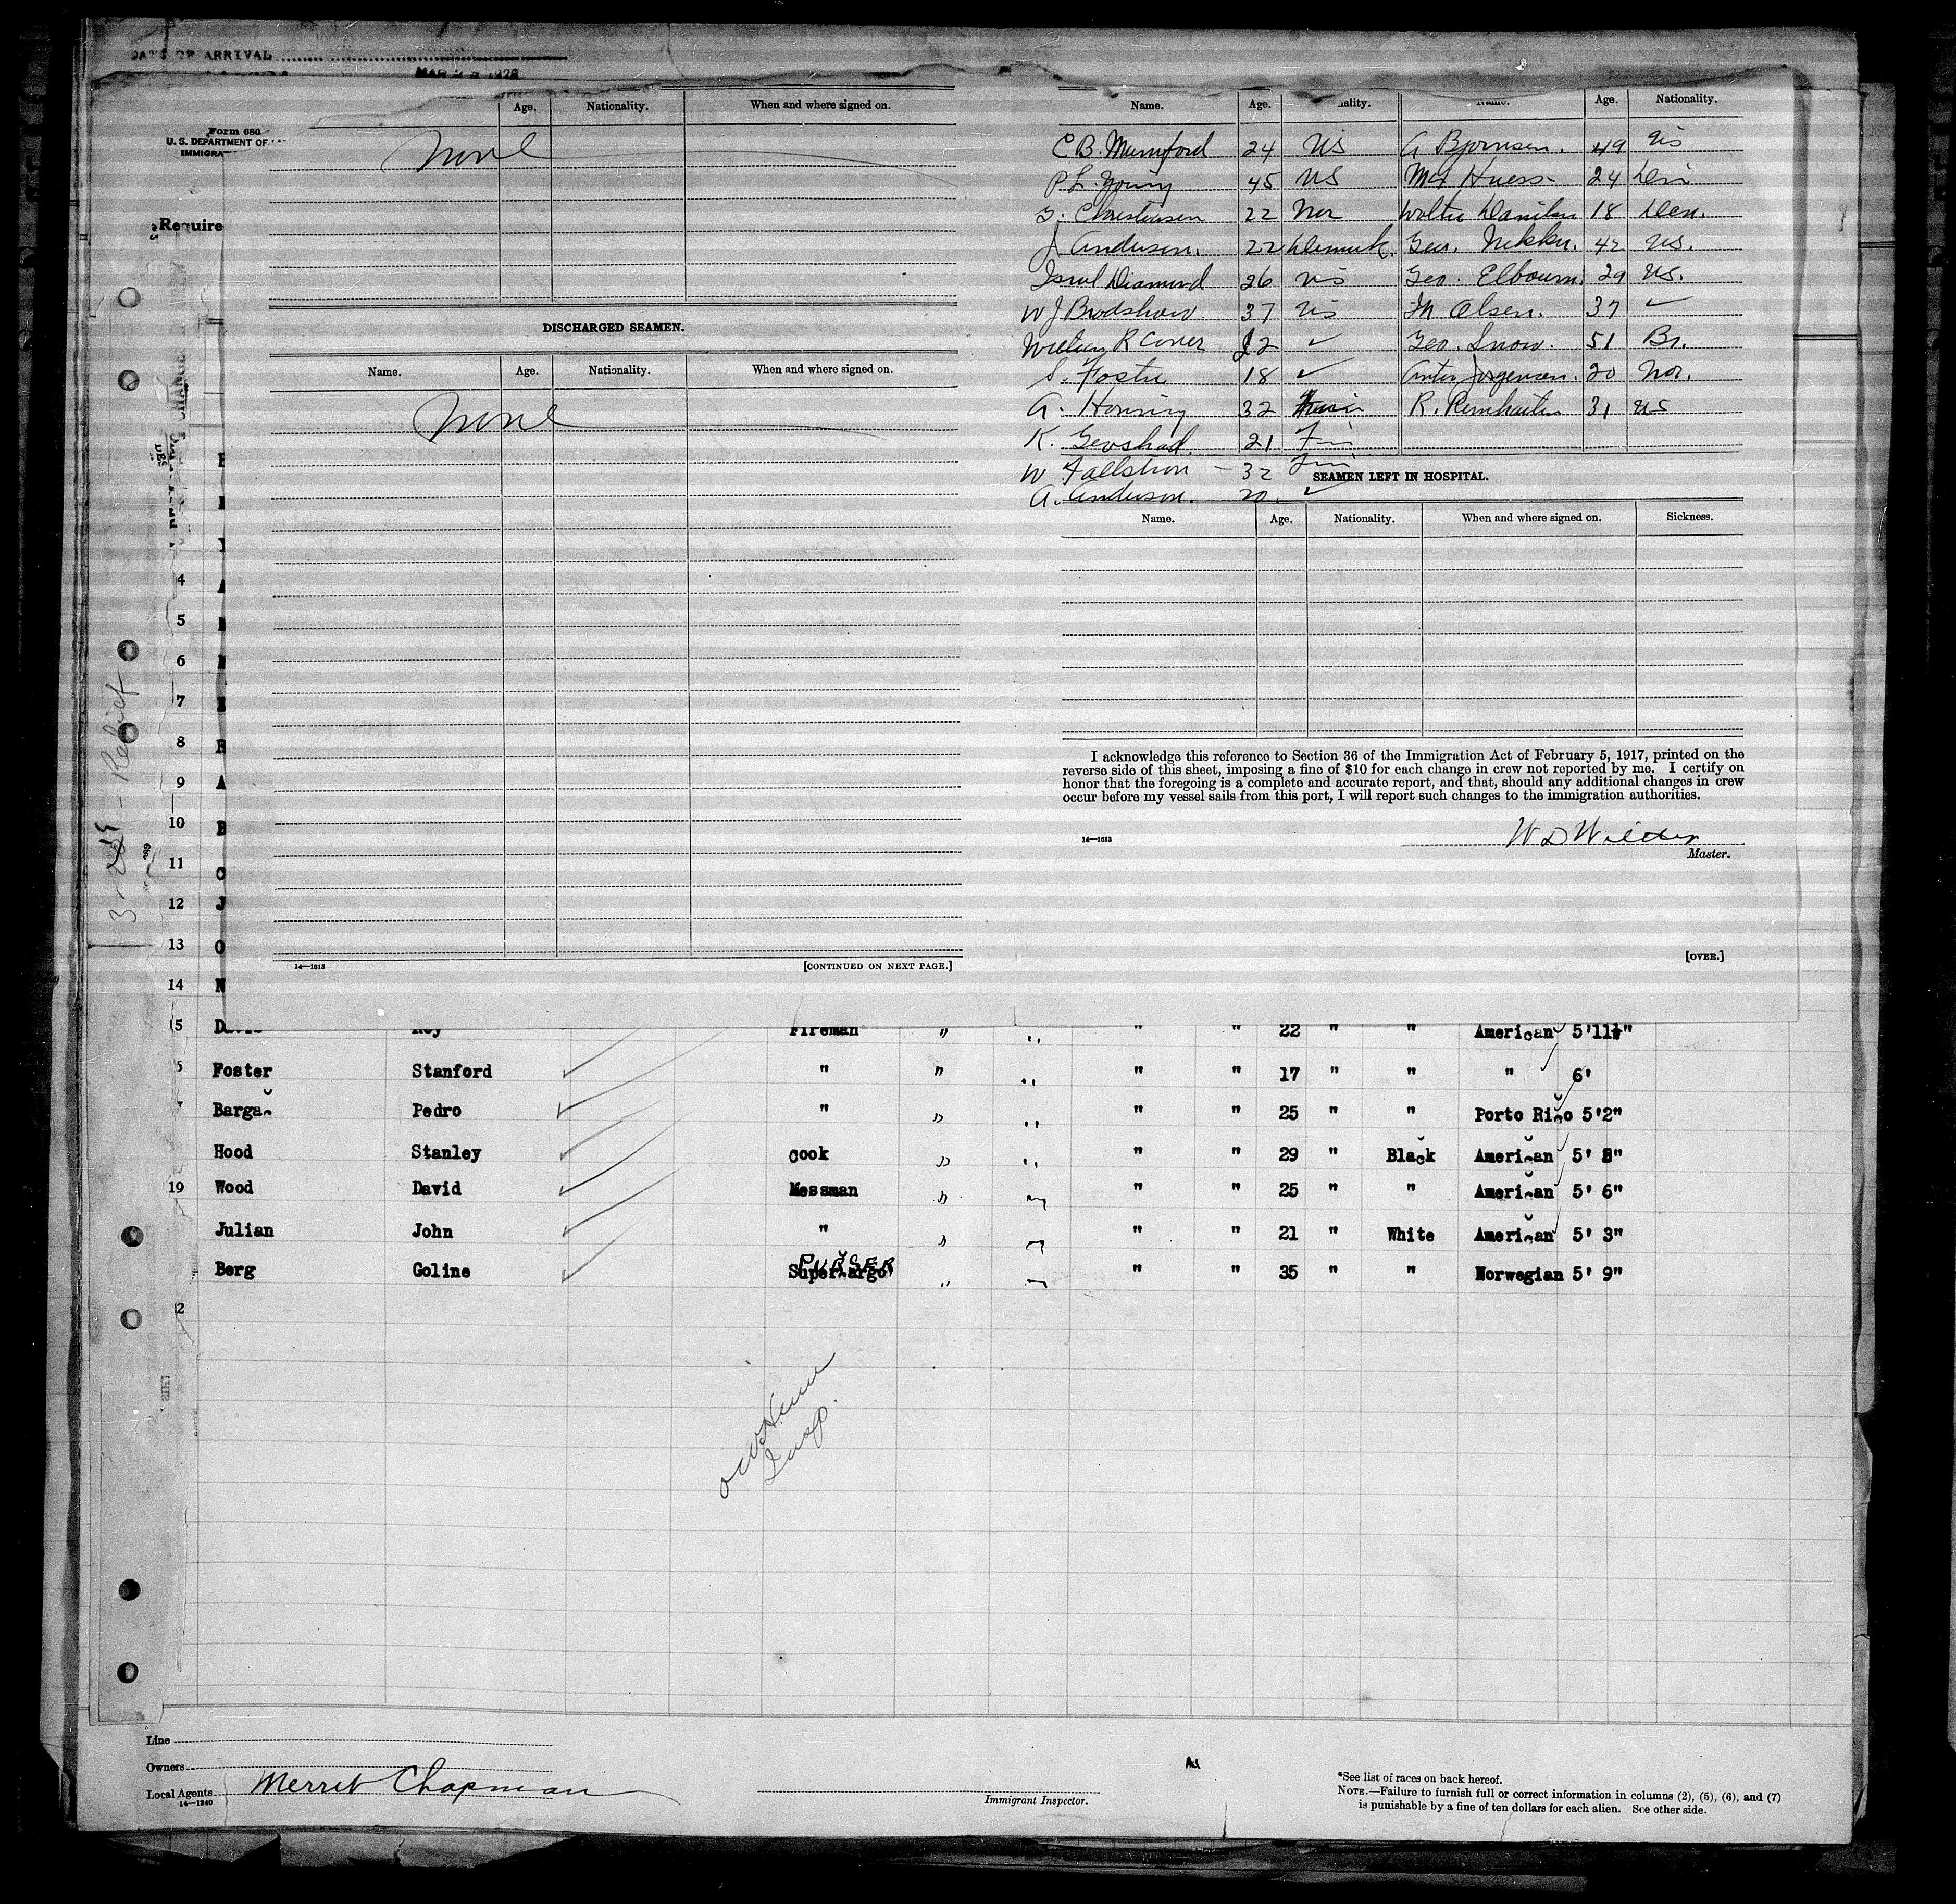 DATE OF ARRIVAL
MAR 1928
Form 680
U. S. DEPARTMENT OF
IMMIGRA
Require
3- Relief
Age. Nationality. When and where signed on.
None
DISCHARGED SEAMEN.
Name. Age. Nationality. When and where signed on.
None
14—1613 [CONTINUED ON NEXT PAGE.]
Name. Age. Nationality. Name. Age. Nationality.
C B. Mumford 24 US A Bjornsen. 49 US
P L. Young 45 US Max Huess 24
G. Christensen 22 Nor Walter 18 Den.
J Anderson. 22 Denmark. Geo. Nekku. 42 US.
Isrul Diamond 26 US Geo. Elbourn. 29 US.
W J Bradshaw 37 US M Olsen. 37 ✓
R Cover 22 ✓ Geo. Snow. 51 Br.
S. Foster 18 ✓ Anton Jorgensen. 20 Nor.
A. 32 R. 31 US
K. 21 Fin
W Fallstrom - 32 Fin
A. Anderson. 20. ✓
SEAMEN LEFT IN HOSPITAL.
Name. Age. Nationality. When and where signed on. Sickness.
I acknowledge this reference to Section 36 of the Immigration Act of February 5, 1917, printed on the
reverse side of this sheet, imposing a fine of $10 for each change in crew not reported by me. I certify on
honor that the foregoing is a complete and accurate report, and that, should any additional changes in crew
occur before my vessel sails from this port, I will report such changes to the immigration authorities.
W D Wilder
14—1613 Master.
[OVER.]
4
5
6
7
8 R
9 A
10 B
11 C
12 J
13 O
14 N
5 Fireman " " " " 22 " " American 5'11½"
Foster Stanford " " " " " 17 " " " 6'
Barga Pedro " " " " " 25 " " Porto Rico 5'2"
Hood Stanley Cook " " " " 29 " Black American 5' 8"
19 Wood David Messman " " " " 25 " " American 5' 6"
Julian John " " " " " 21 " White American 5' 3"
Berg Goline Supercargo PURSER " " " " 35 " " Norwegian 5' 9"
2
Insp.
Line
Owners
Local Agents Merritt Chapman
14—1240
Immigrant Inspector.
*See list of races on back hereof.
NOTE.—Failure to furnish full or correct information in columns (2), (5), (6), and (7)
is punishable by a fine of ten dollars for each alien. See other side.